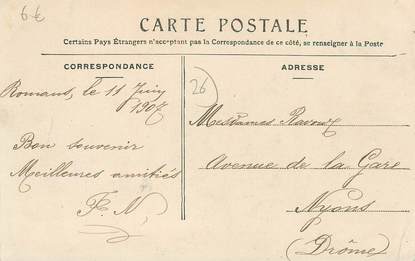 6€
CARTE POSTALE
Certains Pays Étrangers n'acceptant pas la Correspondance de ce côté, se renseigner à la Poste
CORRESPONDANCE
Romans, le 11 Juin
1907
Bon souvenir
Meilleures amitiés
F. N.
26
ADRESSE
Mesdames Ravoux
Avenue de la Gare
Nyons
(Drôme)